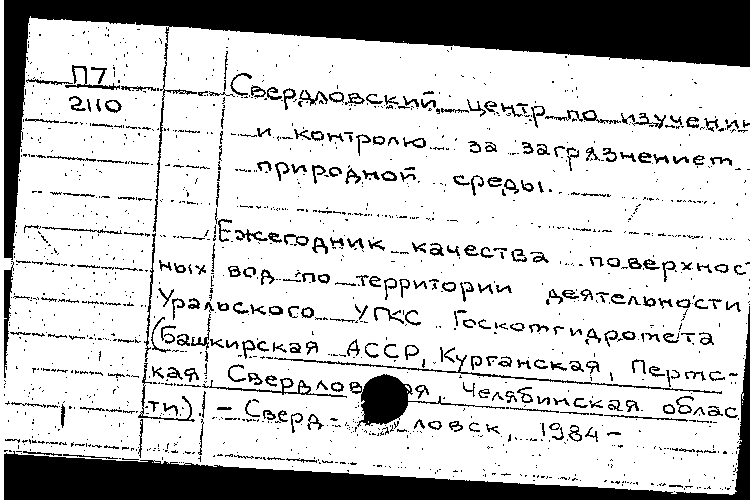 П7
2110
Свердловский центр по изучению
и контролю за загрязнением
природной среды.
Ежегодник качества поверхност-
ных вод по территории деятельности
Уральского УГКС Госкомгидромета
(Башкирская АССР, Курганская, Пермс-
кая, Свердловская, Челябинская облас
ти). - Сверд- ловск, 1984-